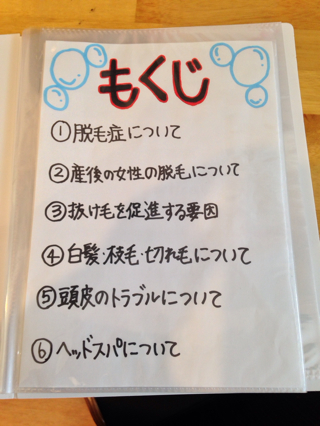 もくじ
①脱毛症について
②産後の女性の脱毛について
③抜け毛を促進する要因
④白髪・枝毛・切れ毛について
⑤頭皮のトラブルについて
⑥ヘッドスパについて